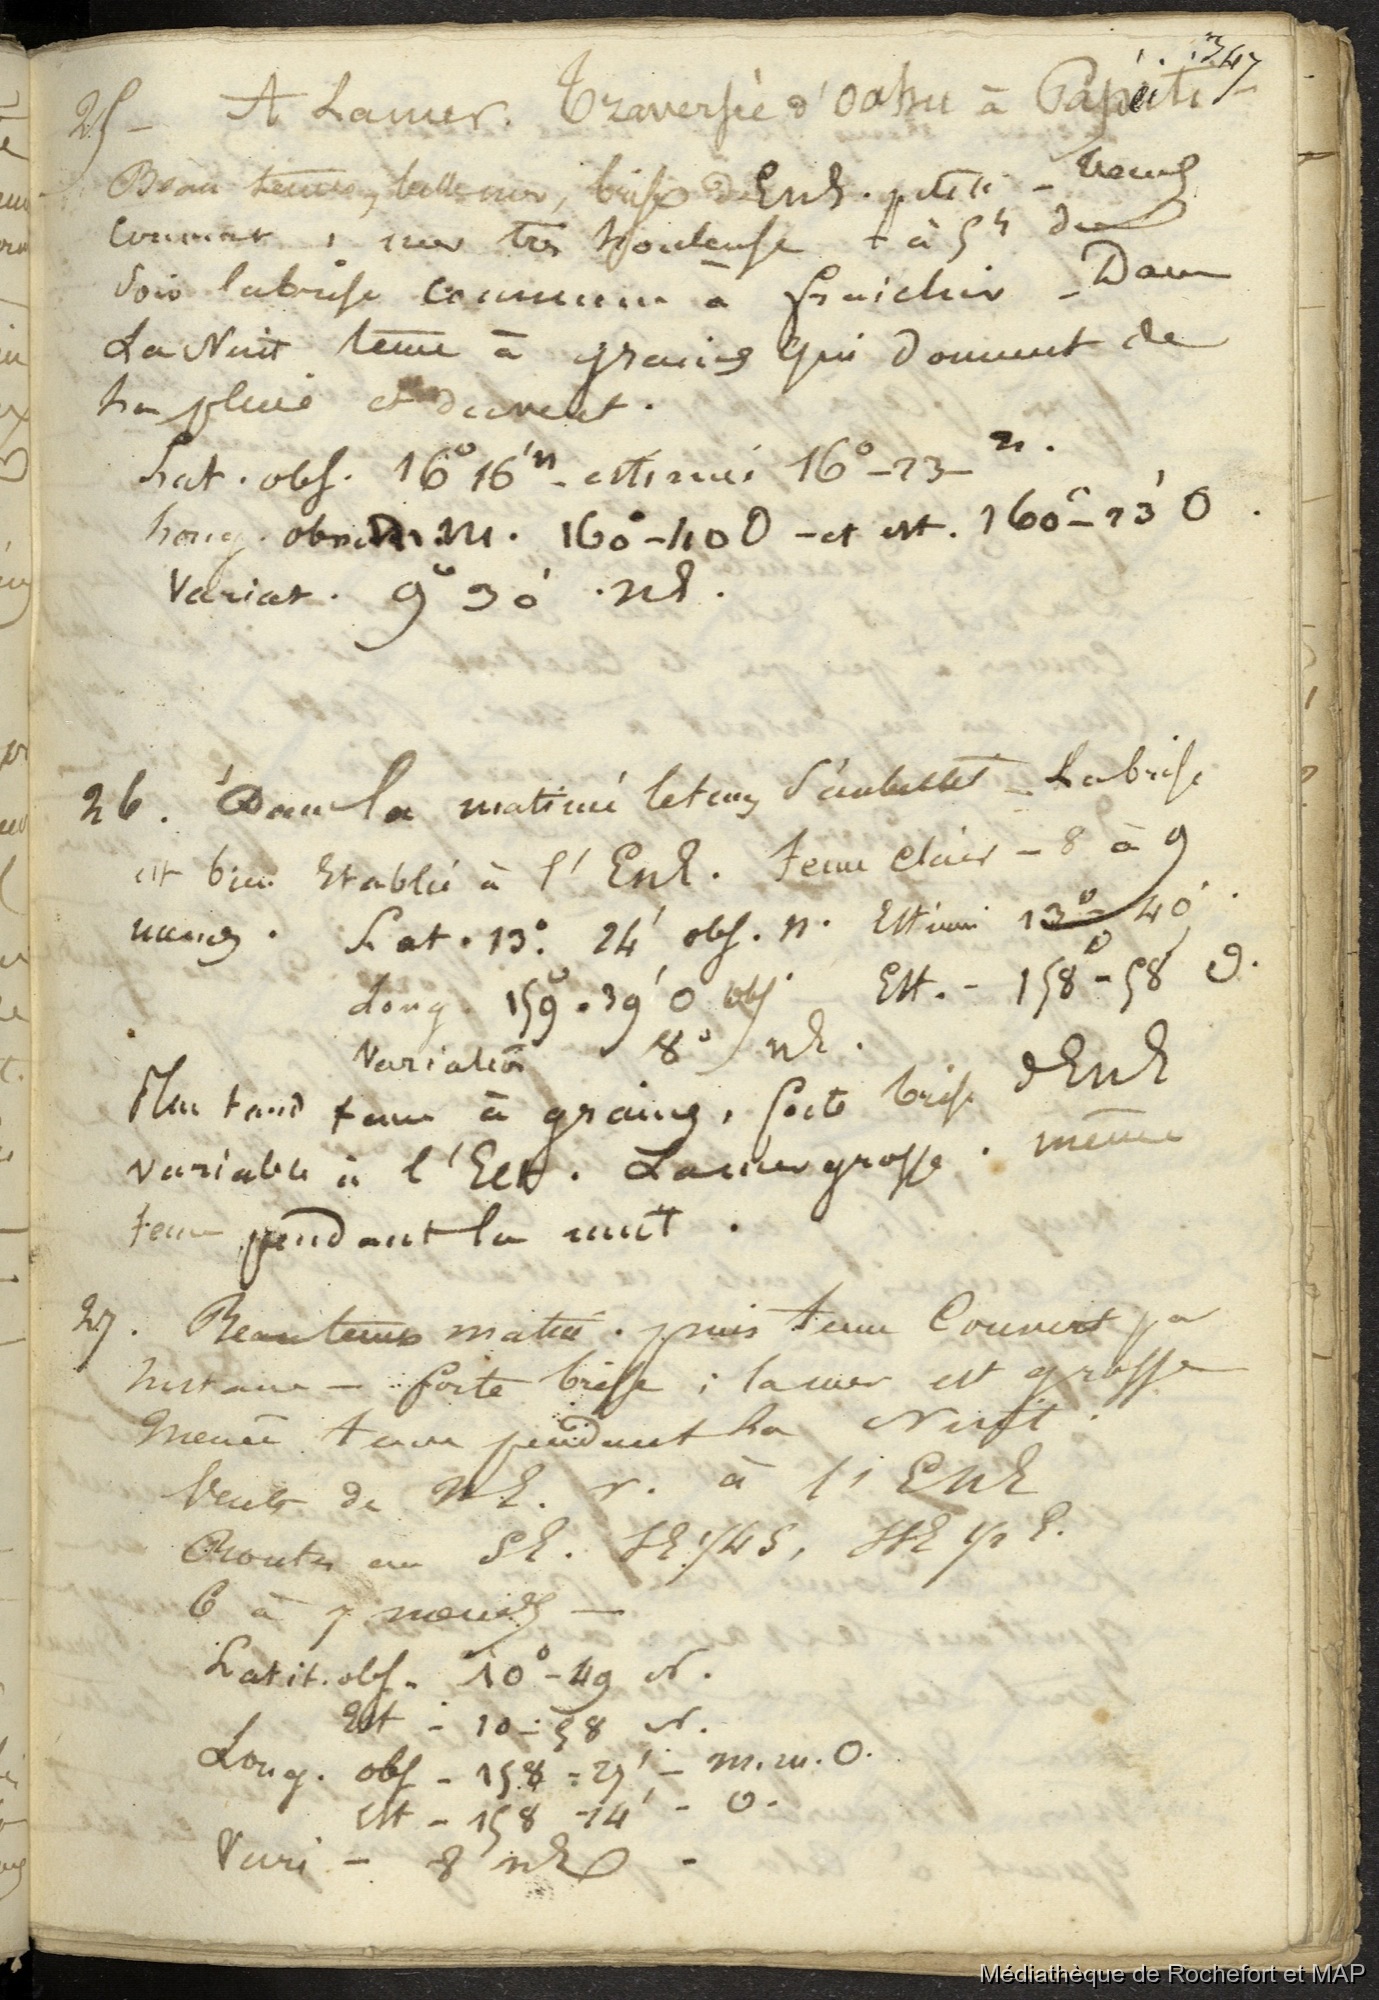 347
25 - A Lamer. Traversée d'Oahu à Papeiti -
Beau tems, belle mer, brise d'ENE. petite - Tems
couvert, mer très houleuse - à 5h du
soir la brise commence à fraichir - Dans
La Nuit tems à grains qui donnent de
La pluie et du vent.
Lat. obs. 16° 16' n - estimée 16° - 23 - n.
Long. obser. M. 160° - 40 O - et est. 160° - 23' O.
Variat. 9° 30' . nE.
26. Dans la matinée le tems s'embellit - La brise
est bien Etablie à l'ENE. Tems clair - 8 à 9
nœuds. Lat. 13°. 24' obs. n. Estimée 13° - 40'.
Long. 159° . 39' O obs. Est. - 158° - 58' O.
Variation 8° nE.
Plus tard tems à grains, forte brise d'ENE
variable à l'Est. La mer grosse. même
tems pendant la nuit.
27. Beau tems matin. puis tems Couvert par
Instans - forte brise ; la mer est grosse
même tems pendant La Nuit.
Vents de NE. v. à l'ENE
Routes au SE. SE 1/4 S, SSE 1/2 E.
6 à 7 nœuds -
Latit. obs. 10° - 49 N.
Est - 10 - 58 N.
Long. obs - 158 - 29' - m.m. O.
Est - 158 - 14' - O.
Vari - 8 nE -
Médiathèque de Rochefort et MAP